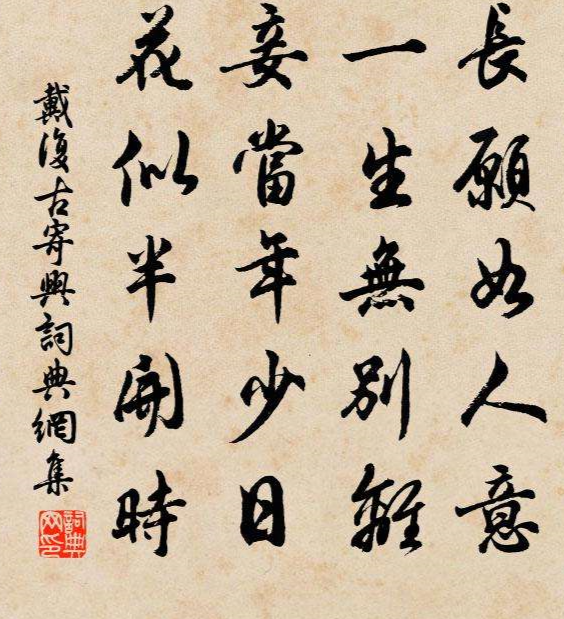 長願如人意
一生無別離
妾當年少日
花似半開時
戴復古寄興詞典網集
詞典网印